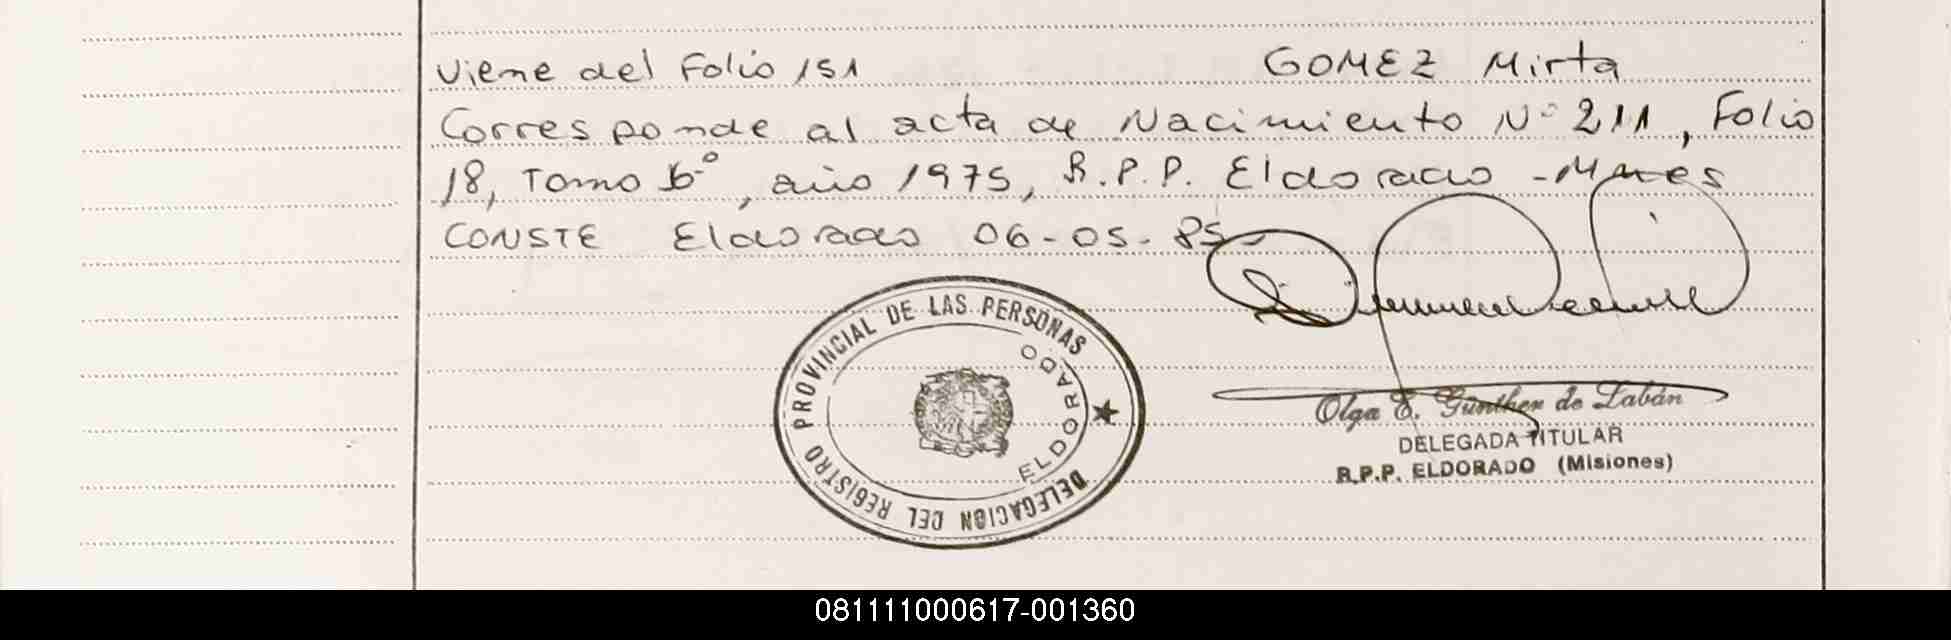 Viene del Folio 151 GOMEZ Mirta
Corresponde al acta de Nacimiento Nº 211, Folio
18, Tomo 6º, año 1975, R.P.P. Eldorado - Mnes
CONSTE Eldorado 06-05-85-
DELEGACION DEL REGISTRO PROVINCIAL DE LAS PERSONAS
ELDORADO
Olga E. Günther de Labán
DELEGADA TITULAR
R.P.P. ELDORADO (Misiones)
081111000617-001360